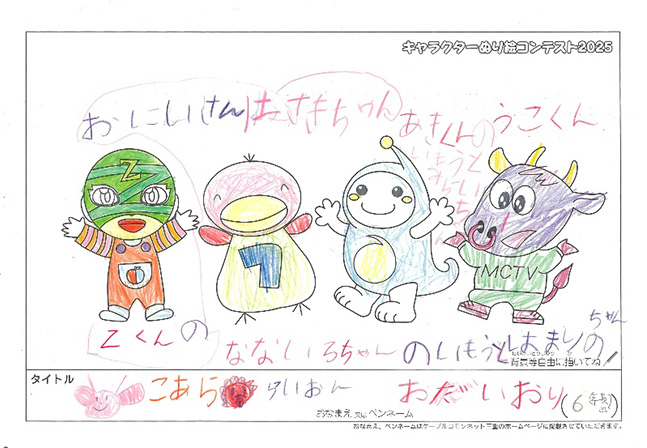 キャラクターぬり絵コンテスト2025
おにいさん
はさきちゃん
あきくんの
いもうと
うこくん
Z
7
MCTV
Zくんの
なないろちゃん
のいもうと
ちゃん
背景等自由に描いてね!
タイトル
こあら
らいおん
おだいおり
(6
おなまえ 又は ペンネーム
おなまえ、ペンネームはケーブルコモンネット三重のホームページに掲載させていただきます。